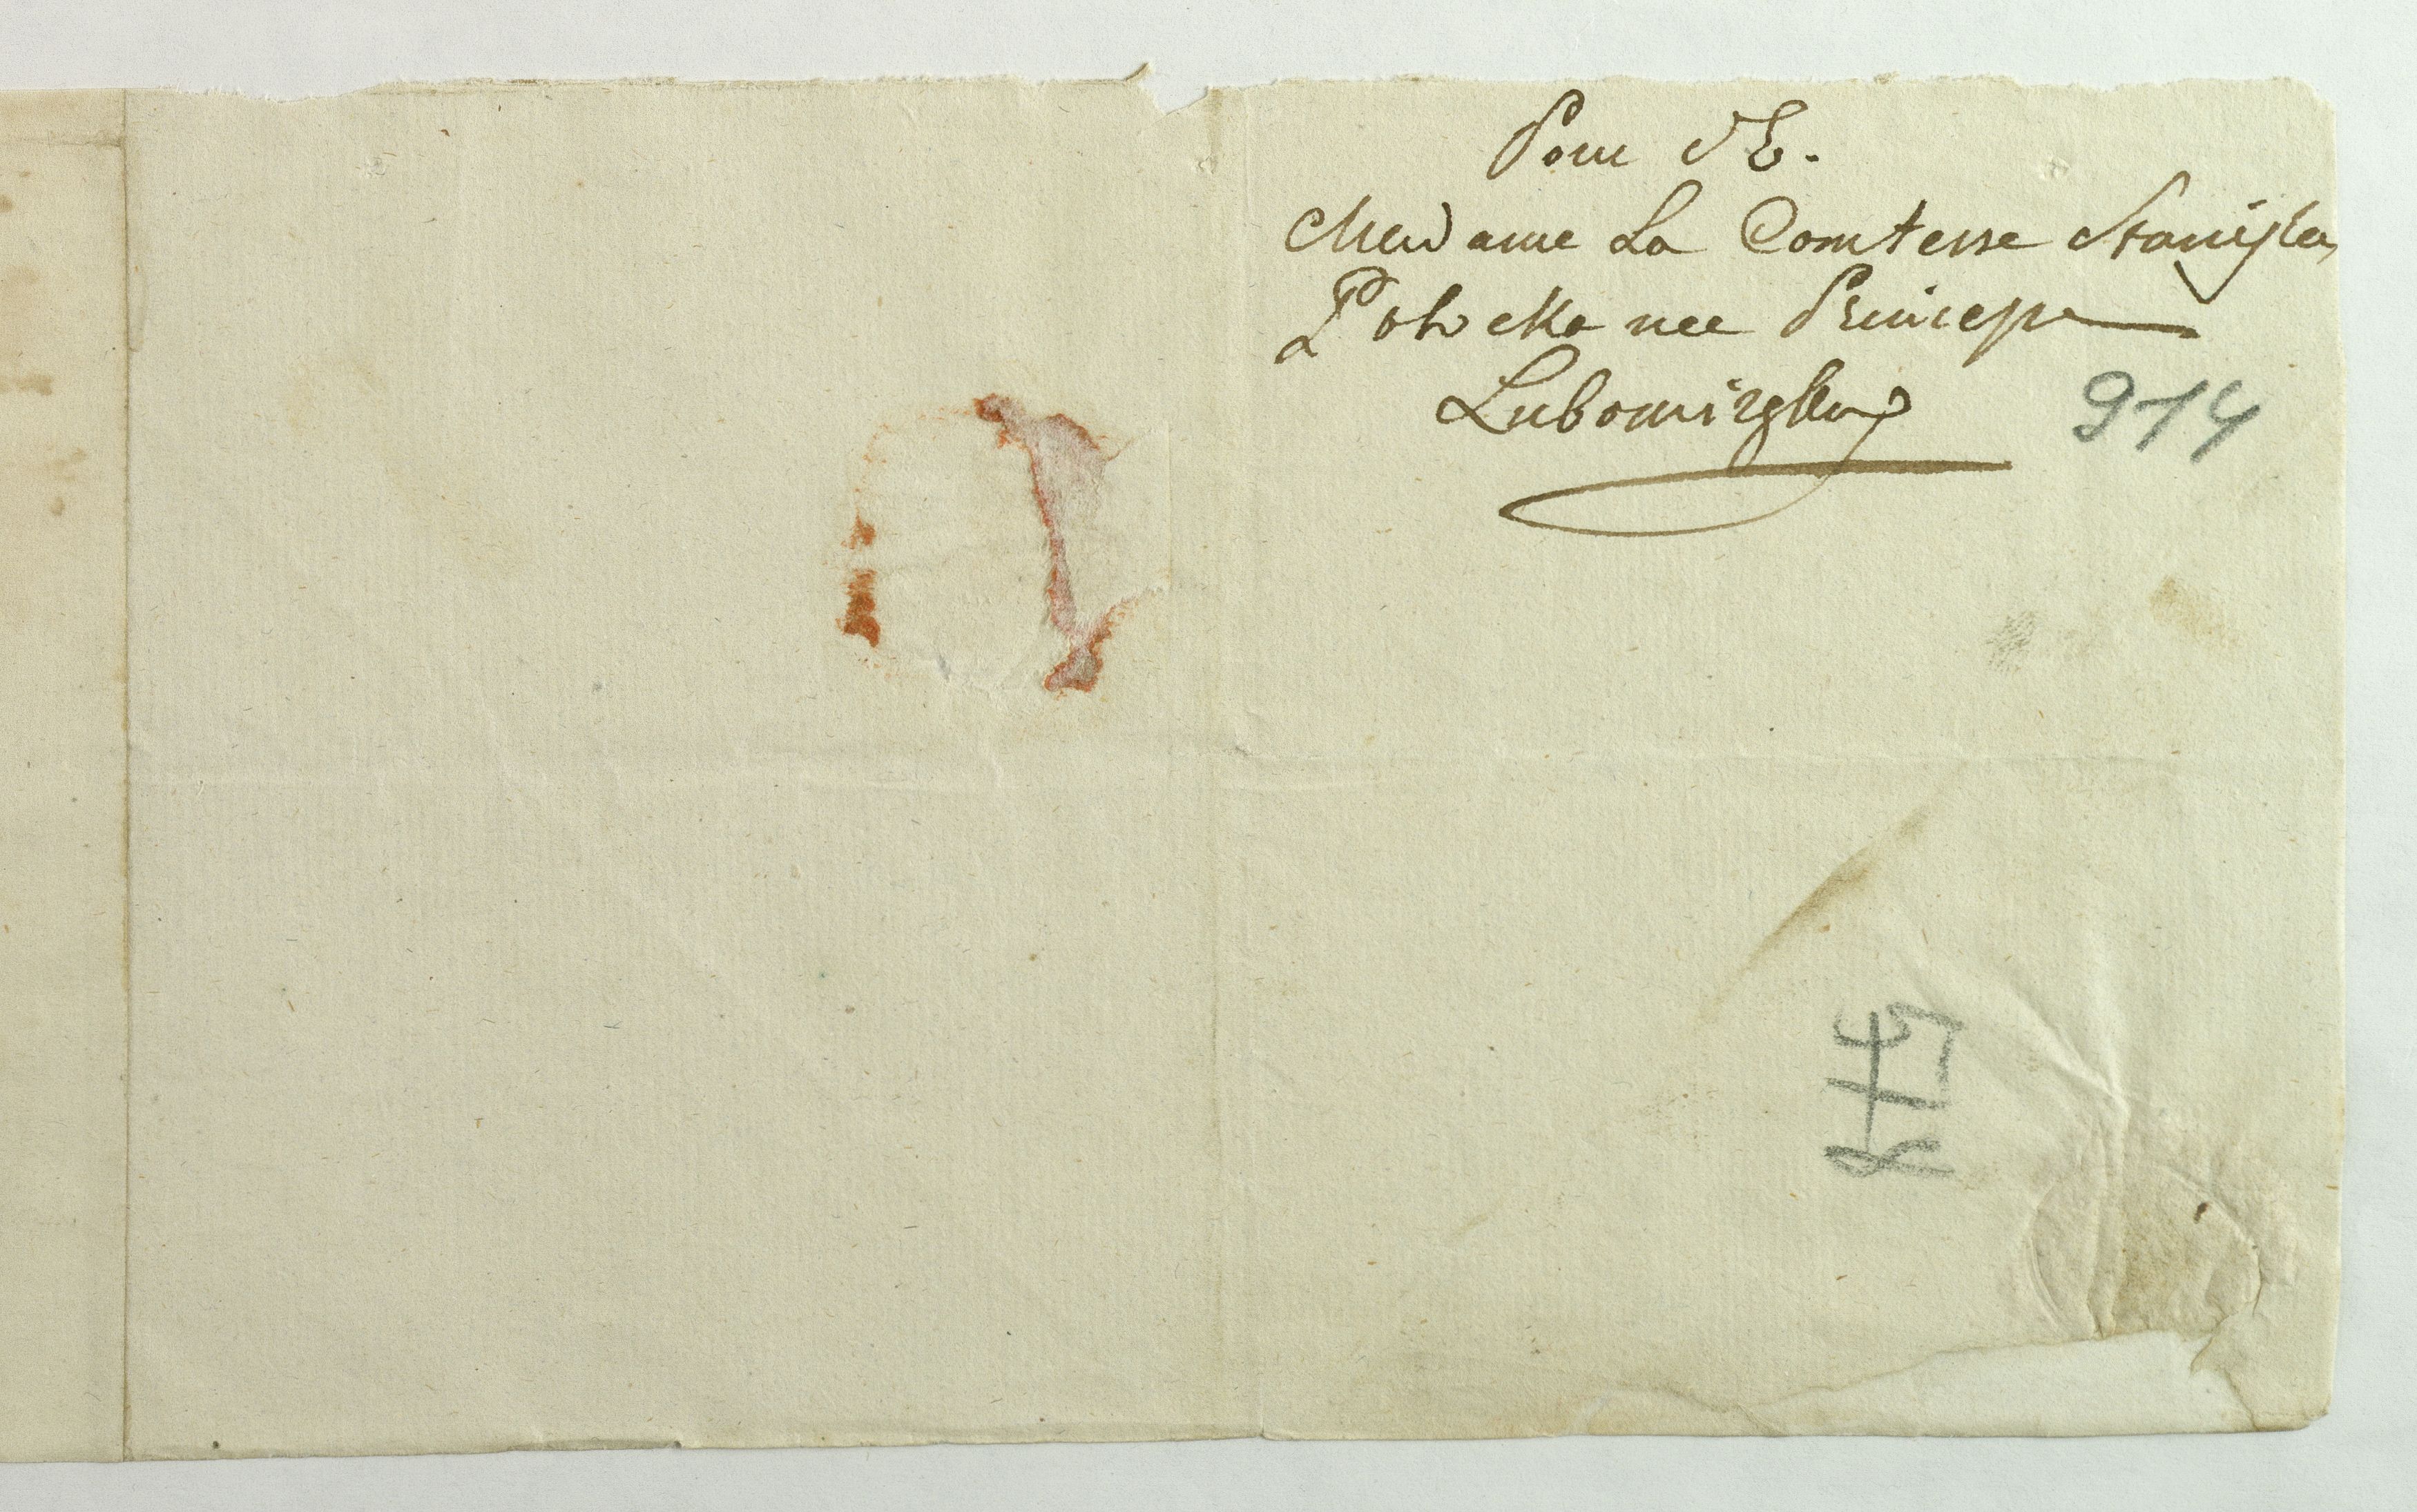 Pour S E.
Madame La Comtesse Stanislas
Potocka nee Princesse
Lubomirska
914